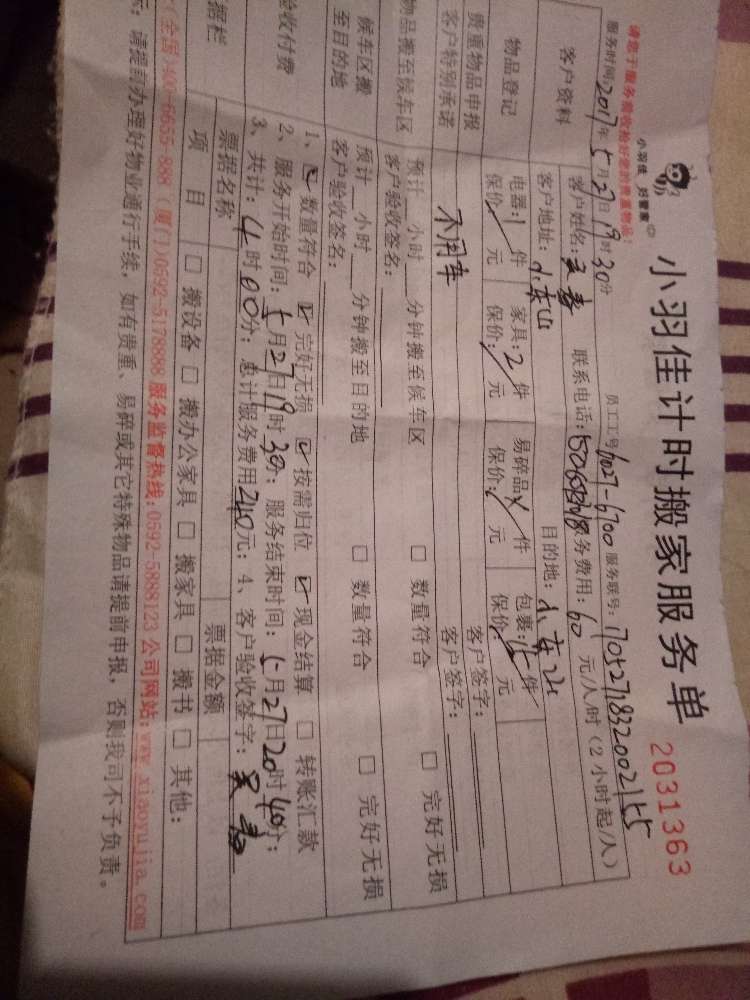 请您于服务前收拾好您的贵重物品！
小羽佳 好管家
小羽佳计时搬家服务单
2031363
服务时间：2017年5月27日19时30分 员工工号6027-6700 服务联号：
客户资料 客户姓名： 联系电话： 服务费用：60元/人/时（2小时起/人）
客户地址：小东山 目的地：小东山
物品登记 电器：1件 家具：2件 易碎品 件 包裹： 件
保价： 元 保价： 元 保价： 元 保价 元
贵重物品申报 客户签字：
客户特别承诺 不用车 客户签字：
物品搬至候车区 预计__小时__分钟搬至候车区 □ 数量符合 □ 完好无损
客户验收签名：
候车区搬至目的地 预计__小时__分钟搬至目的地 □ 数量符合 □ 完好无损
客户验收签名：
验收付费 1、☑数量符合 ☑完好无损 ☑按需归位 ☑现金结算 □ 转账汇款
2、服务开始时间：5月27日19时30分；服务结束时间：5月27日20时40分；
3、共计：4时00分；总计服务费用240元；4、客户验收签字：
据栏 票据名称 票据金额
项目 □ 搬设备 □ 搬办公家具 □ 搬家具 □ 搬书 □ 其他：
(全国)400-6655-888 (厦门)0592-5178888 服务监督热线:0592-5888123 公司网站:www.xiaoyujia.com
示：请提前办理好物业通行手续，如有贵重、易碎或其它特殊物品请提前申报，否则我司不予负责。